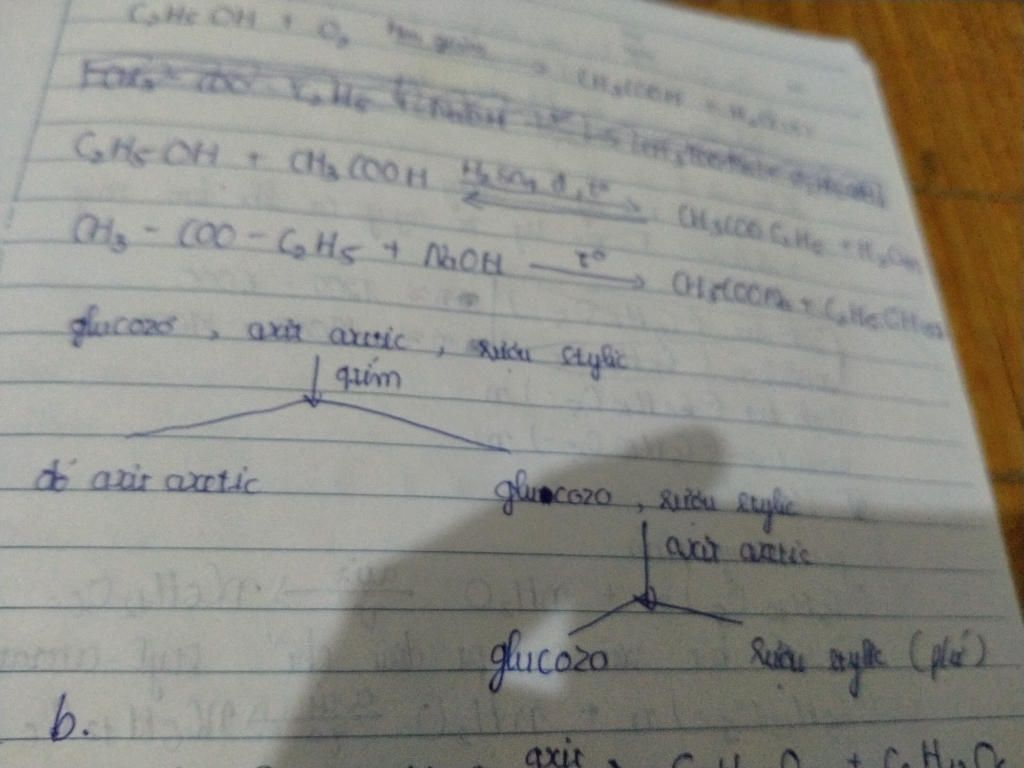 C₂H₅OH + O₂ men giấm → CH₃COOH + H₂O
C₂H₅OH + CH₃COOH H₂SO₄ đ, t° ⇌ CH₃COOC₂H₅ + H₂O
CH₃ - COO - C₂H₅ + NaOH t° → CH₃COONa + C₂H₅OH
glucozo, axit axetic, rượu etylic
quím
đỏ axit axetic glucozo, rượu etylic
axit axetic
glucozo rượu etylic (pứ)
b.
axit